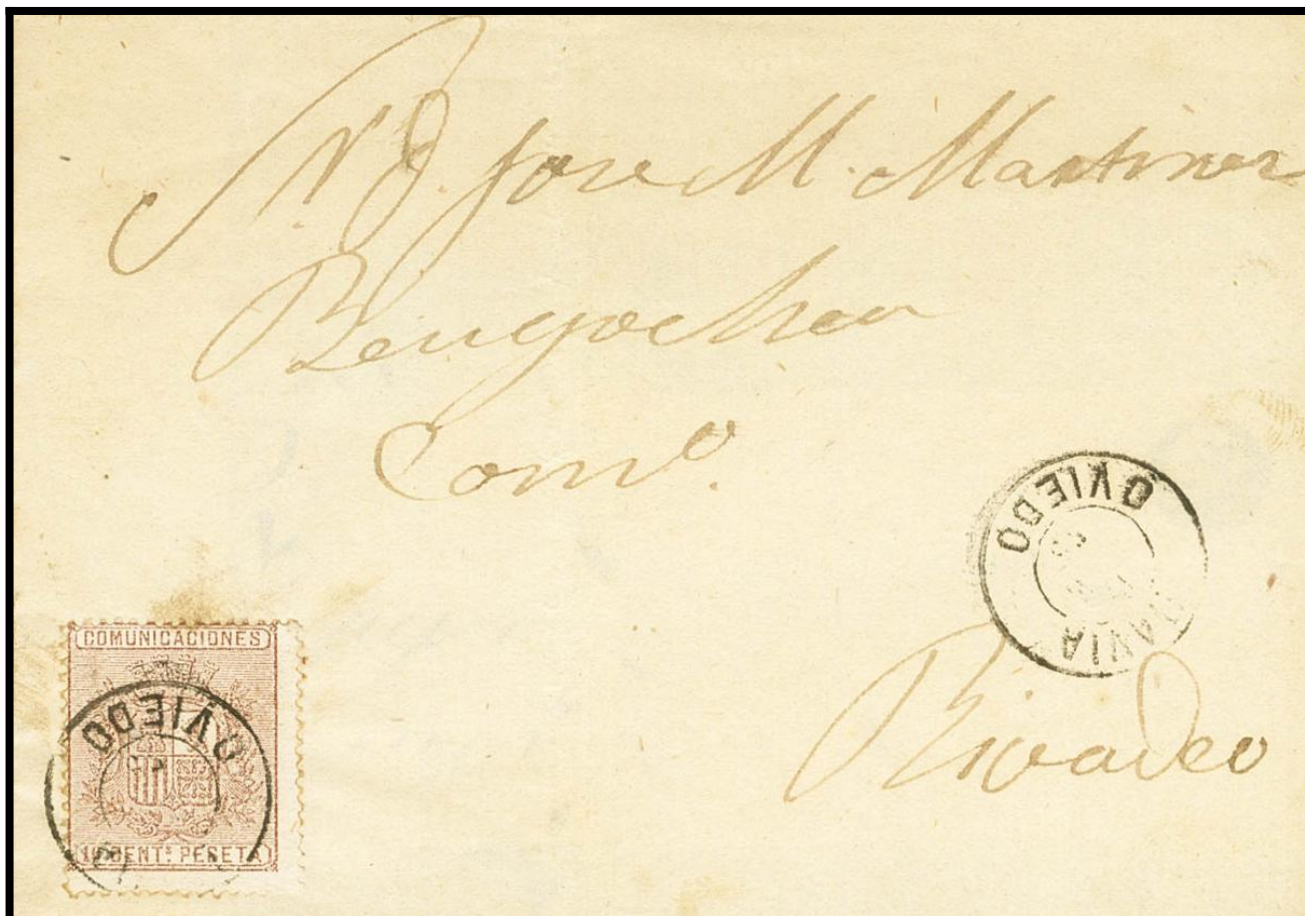 Sr. D. Jose M. Martinez
Bengochea
Comº.
OVIEDO
NAVIA
Rivadeo
COMUNICACIONES
OVIEDO
10 CENTS PESETA